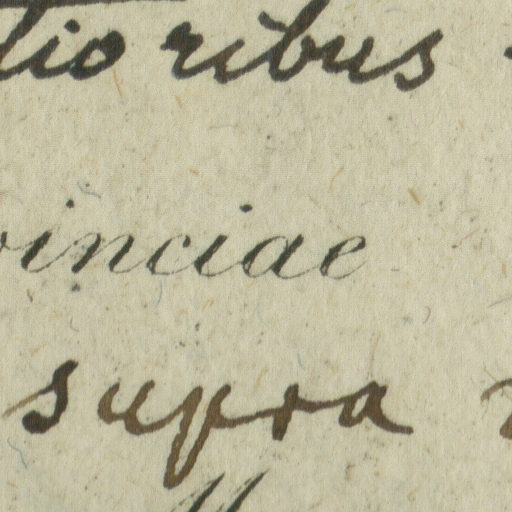 tioribus
vinciae
supra